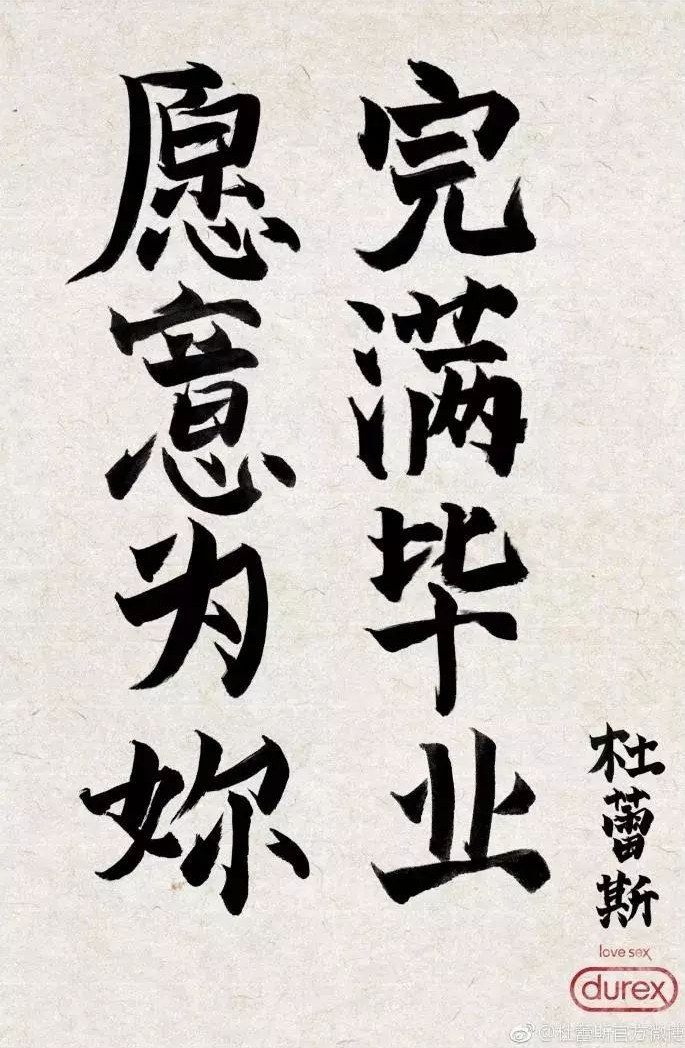 完满毕业
愿意为妳
杜蕾斯
love sex
durex
@杜蕾斯官方微博